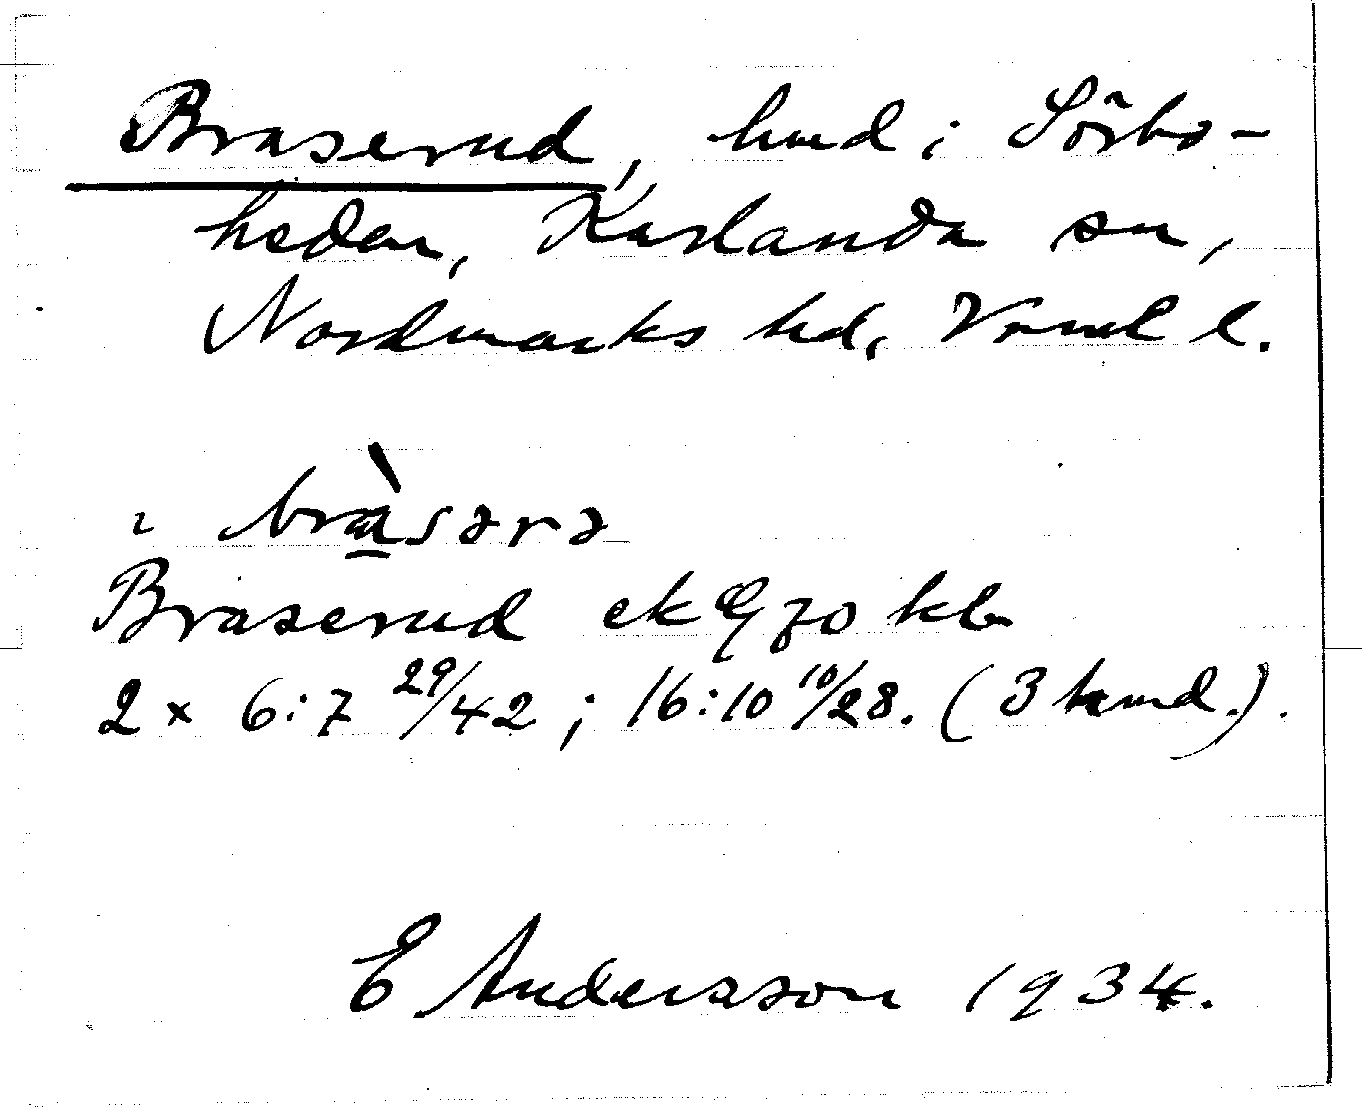 Braserud, hmd i Sörbo-
heden, Karlanda sn,
Nordmarks hd, Värml l.
ı bràsərə
Braserud ek kbl
2 x 6:7 29/42 ; 16:10 10/28. (3 hmd.).
E Andersson 1934.